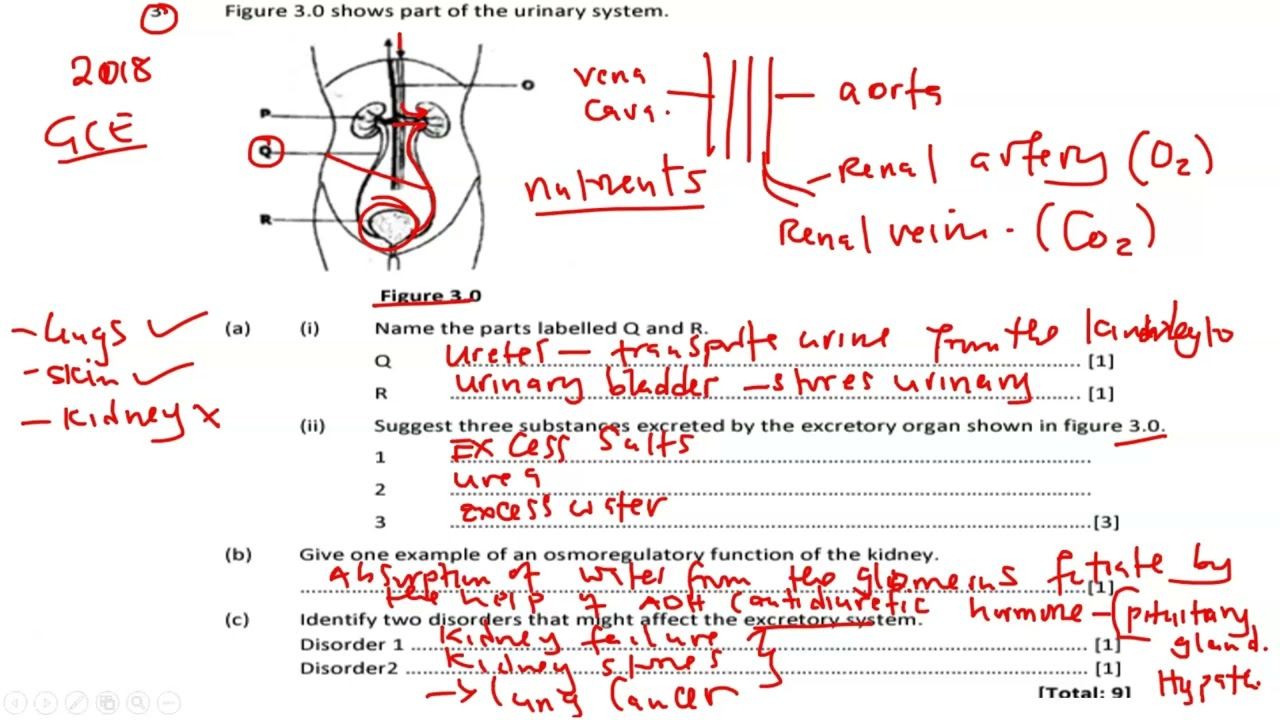 3
Figure 3.0 shows part of the urinary system.
2018
GCE
P
Q
R
O
vena
cava.
aorta
Renal artery (O2)
Renal vein. (CO2)
nutrients
Figure 3.0
- lungs ✓
- skin ✓
- kidney x
(a) (i) Name the parts labelled Q and R.
Q ureter — transports urine from the to [1]
R urinary bladder — stores urinary [1]
(ii) Suggest three substances excreted by the excretory organ shown in figure 3.0.
1 Excess salts
2 urea
3 excess water [3]
(b) Give one example of an osmoregulatory function of the kidney.
Absorption of water from the filtrate by [1]
the help of ADH (antidiuretic hormone - (pituitary
gland.
Hypoth.
(c) Identify two disorders that might affect the excretory system.
Disorder 1 kidney failure [1]
Disorder2 kidney stones [1]
→ Lung Cancer
[Total: 9]